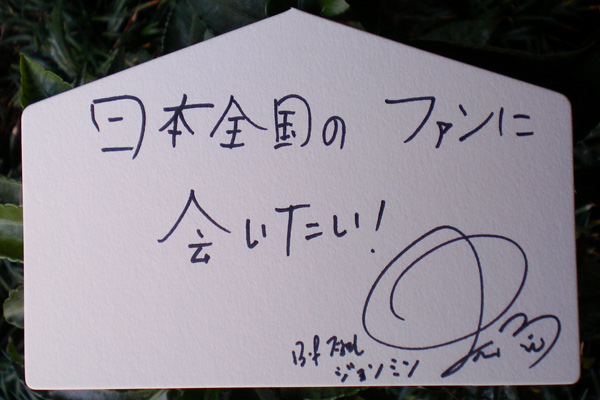 日本全国の ファンに
会いたい!
ジョンミン